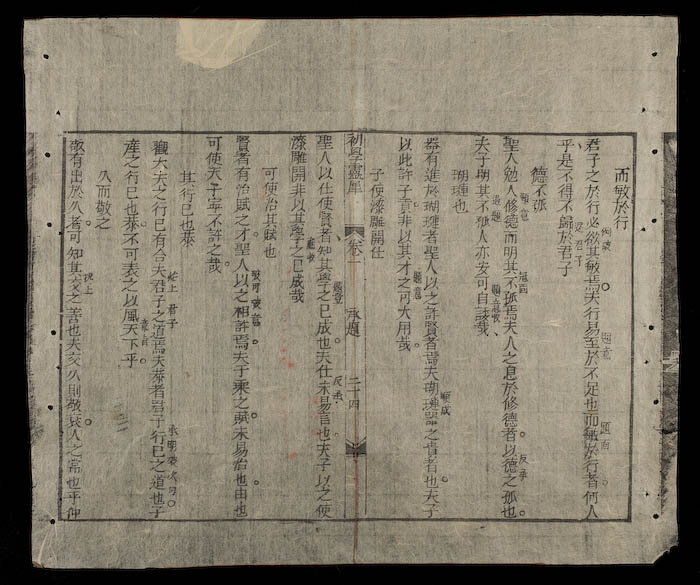 而敏於行
君子之於行必欲其敏焉夫行易至於不足也而敏於行者何人
乎是不得不歸於君子
德不孤
聖人勉人修德而明其不孤焉夫人之怠於修德者以德之孤也
夫子明其不孤人亦安可自諉哉
瑚璉也
器有進於瑚璉者聖人以之許賢者焉夫瑚璉器之貴者也夫子
以此許子貢非以其才之可大用哉
子使漆雕開仕
初學靈犀
卷一
承題
二十四
聖人以仕使賢者知其學之已成也夫仕未易言也夫子以之使
漆雕開非以其學之已成哉
可使治其賦也
賢者有治賦之才聖人以之相許焉夫千乘之賦未易治也由也
可使夫子寧不許之哉
其行己也恭
觀大夫之行己有合夫君子之道焉夫恭者君子行己之道也子
產之行己也恭不可表之以風天下乎
久而敬之
敬有出於久者可知其交之善也夫交久則敬衰人之常也平仲